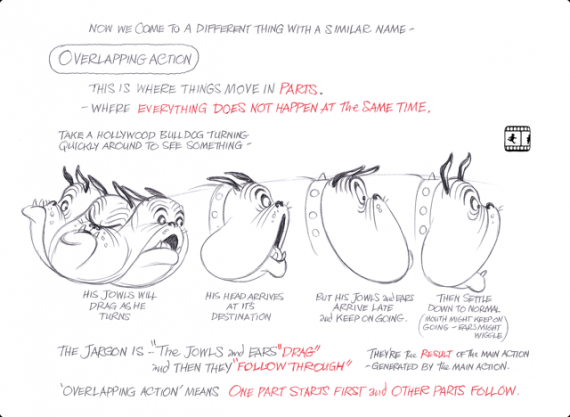 NOW WE COME TO A DIFFERENT THING WITH A SIMILAR NAME –
OVERLAPPING ACTION
THIS IS WHERE THINGS MOVE IN PARTS.
– WHERE EVERYTHING DOES NOT HAPPEN AT THE SAME TIME.
TAKE A HOLLYWOOD BULLDOG TURNING
QUICKLY AROUND TO SEE SOMETHING –
HIS JOWLS WILL
DRAG AS HE
TURNS
HIS HEAD ARRIVES
AT ITS
DESTINATION
BUT HIS JOWLS and EARS
ARRIVE LATE
and KEEP ON GOING.
THEN SETTLE
DOWN TO NORMAL
(MOUTH MIGHT KEEP ON
GOING – EARS MIGHT
WIGGLE)
THE JARGON IS – "THE JOWLS and EARS "DRAG"
and THEN THEY "FOLLOW THROUGH"
THEY'RE THE RESULT OF THE MAIN ACTION
– GENERATED BY THE MAIN ACTION.
'OVERLAPPING ACTION' MEANS ONE PART STARTS FIRST and OTHER PARTS FOLLOW.